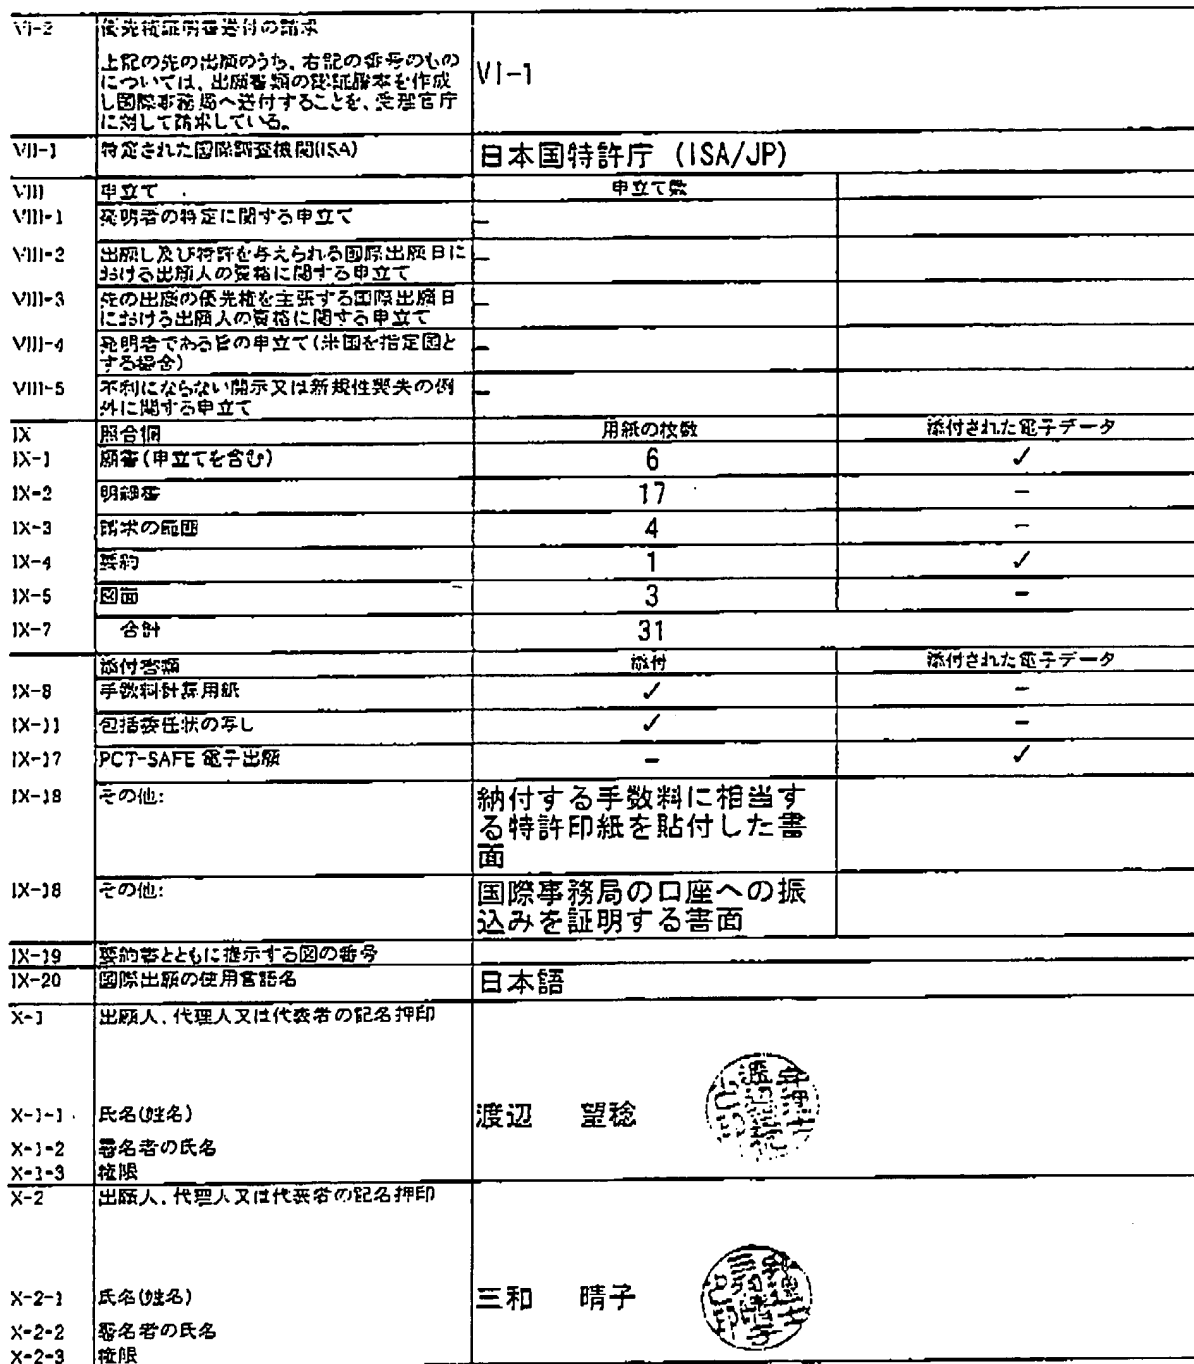 VI-2 優先権証明書送付の請求
上記の先の出願のうち、右記の番号のもの
については、出願書類の認証謄本を作成
し国際事務局へ送付することを、受理官庁
に対して請求している。
VI-1
VII-1 特定された国際調査機関(ISA) 日本国特許庁 (ISA/JP)
VIII 申立て 申立て数
VIII-1 発明者の特定に関する申立て –
VIII-2 出願し及び特許を与えられる国際出願日に –
おける出願人の資格に関する申立て
VIII-3 先の出願の優先権を主張する国際出願日 –
における出願人の資格に関する申立て
VIII-4 発明者である旨の申立て(米国を指定国と –
する場合)
VIII-5 不利にならない開示又は新規性喪失の例 –
外に関する申立て
IX 照合欄 用紙の枚数 添付された電子データ
IX-1 願書(申立てを含む) 6 ✓
IX-2 明細書 17 –
IX-3 請求の範囲 4 –
IX-4 要約 1 ✓
IX-5 図面 3 –
IX-7 合計 31
添付書類 添付 添付された電子データ
IX-8 手数料計算用紙 ✓ –
IX-11 包括委任状の写し ✓ –
IX-17 PCT-SAFE 電子出願 – ✓
IX-18 その他: 納付する手数料に相当す
る特許印紙を貼付した書
面
IX-18 その他: 国際事務局の口座への振
込みを証明する書面
IX-19 要約書とともに提示する図の番号
IX-20 国際出願の使用言語名 日本語
X-1 出願人、代理人又は代表者の記名押印
X-1-1 氏名(姓名) 渡辺 望稔
X-1-2 署名者の氏名
X-1-3 権限
X-2 出願人、代理人又は代表者の記名押印
X-2-1 氏名(姓名) 三和 晴子
X-2-2 署名者の氏名
X-2-3 権限